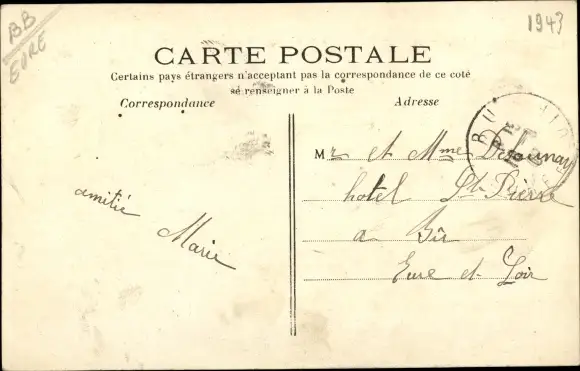 BB
EURE
1943
CARTE POSTALE
Certains pays étrangers n'acceptant pas la correspondance de ce coté
se renseigner à la Poste
Correspondance
Adresse
Mr et Mme Delaunay
hotel St Pierre
a Bû
Eure et Loir
amitié
Marie